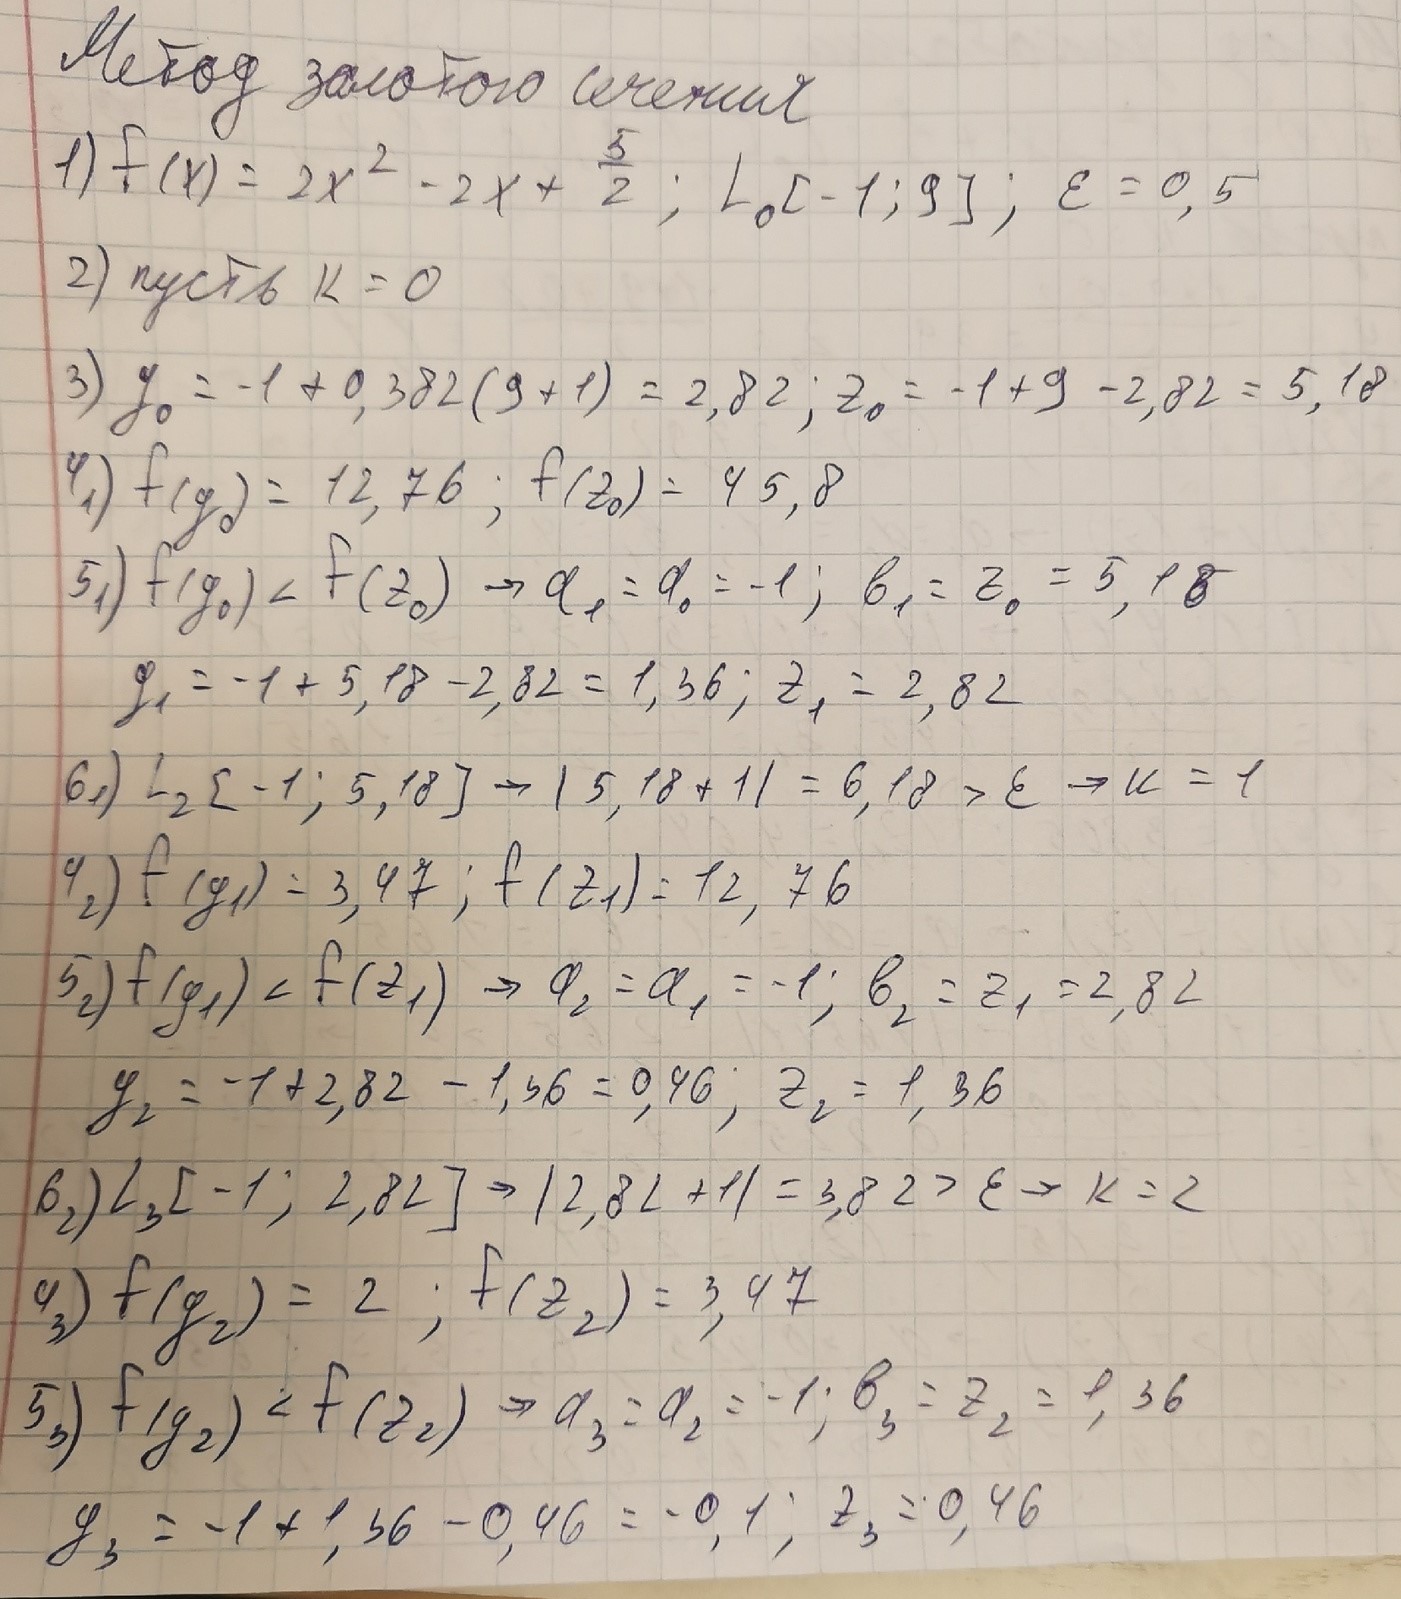 Метод золотого сечения
1) f(x) = 2x² - 2x + 5/2 ; L₀[-1; 9]; ε = 0,5
2) пусть k = 0
3) y₀ = -1 + 0,382(9+1) = 2,82; z₀ = -1+9 -2,82 = 5,18
4₁) f(y₀) = 12,76 ; f(z₀) = 45,8
5₁) f(y₀) < f(z₀) → a₁ = a₀ = -1; в₁ = z₀ = 5,18
y₁ = -1 + 5,18 - 2,82 = 1,36; z₁ = 2,82
6₁) L₂[-1; 5,18] → |5,18+1| = 6,18 > ε → k = 1
4₂) f(y₁) = 3,47 ; f(z₁) = 12,76
5₂) f(y₁) < f(z₁) → a₂ = a₁ = -1; в₂ = z₁ = 2,82
y₂ = -1 + 2,82 - 1,36 = 0,46; z₂ = 1,36
6₂) L₃[-1; 2,82] → |2,82 +1| = 3,82 > ε → k = 2
4₃) f(y₂) = 2 ; f(z₂) = 3,47
5₃) f(y₂) < f(z₂) → a₃ = a₂ = -1; в₃ = z₂ = 1,36
y₃ = -1 + 1,36 - 0,46 = -0,1; z₃ = 0,46